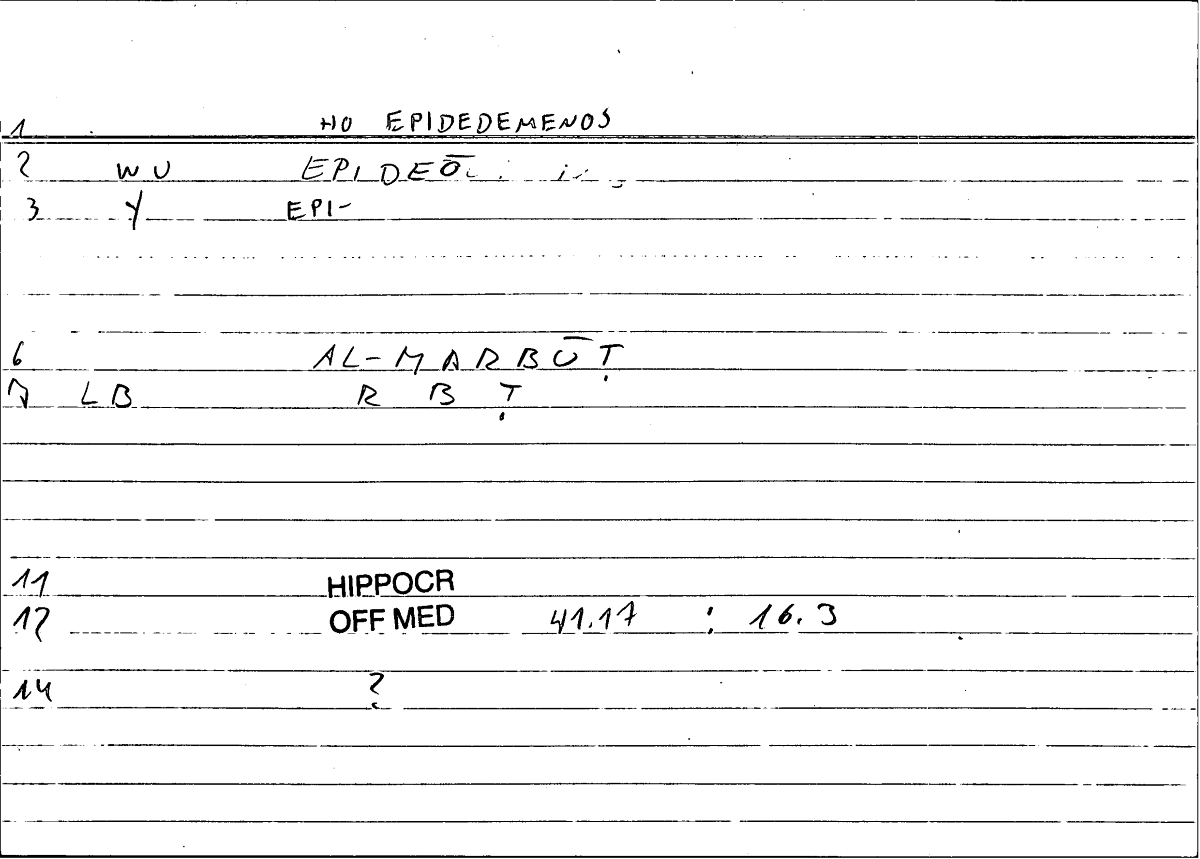 1 HO EPIDEDEMENOS
2 WU EPIDEŌ
3 Y EPI-
6 AL-MARBŪṬ
7 LB R B Ṭ
11 HIPPOCR
12 OFF MED 41.17 : 16.3
14 ?